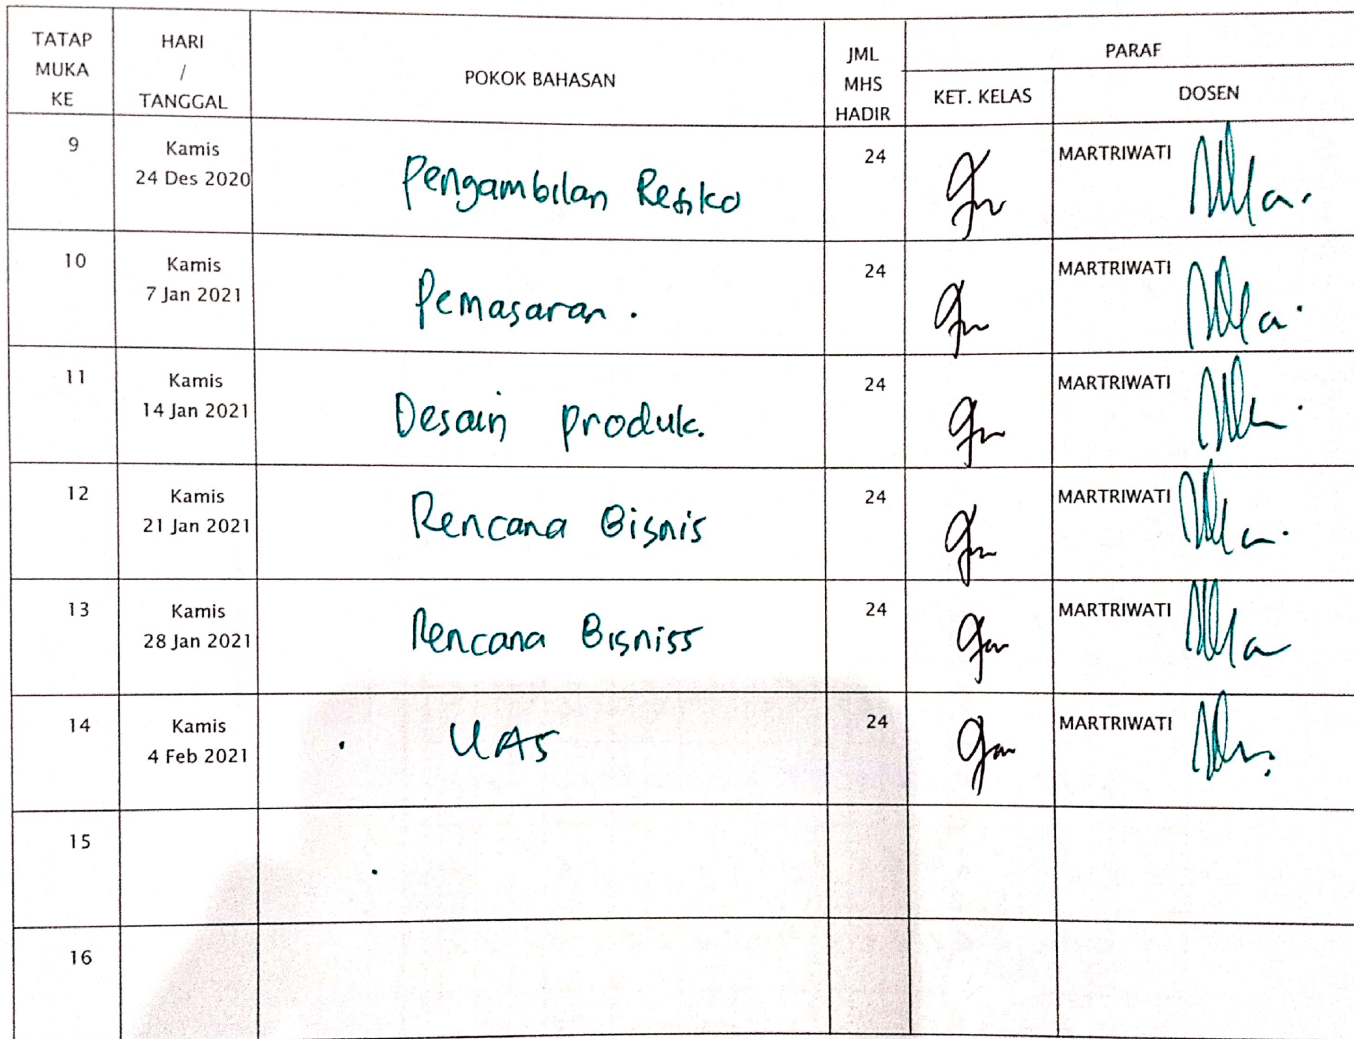 TATAP MUKA KE
HARI / TANGGAL
POKOK BAHASAN
JML MHS HADIR
PARAF
KET. KELAS
DOSEN
9 Kamis 24 Des 2020 Pengambilan Resiko 24 MARTRIWATI
10 Kamis 7 Jan 2021 Pemasaran. 24 MARTRIWATI
11 Kamis 14 Jan 2021 Desain produk. 24 MARTRIWATI
12 Kamis 21 Jan 2021 Rencana Bisnis 24 MARTRIWATI
13 Kamis 28 Jan 2021 Rencana Bisniss 24 MARTRIWATI
14 Kamis 4 Feb 2021 UAS 24 MARTRIWATI
15
16